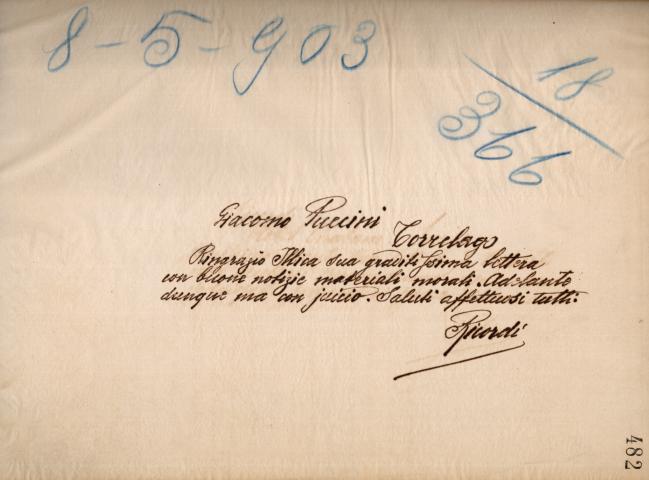 8-5-903
18
366
Giacomo Puccini
Torrelago
Ringrazio Illica sua graditissima lettera
con buone notizie materiali morali. Adelante
dunque ma con juicio. Saluti affettuosi tutti.
Ricordi
482